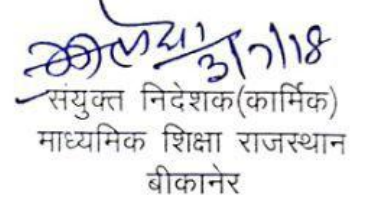 3/7/18
संयुक्त निदेशक(कार्मिक)
माध्यमिक शिक्षा राजस्थान
बीकानेर